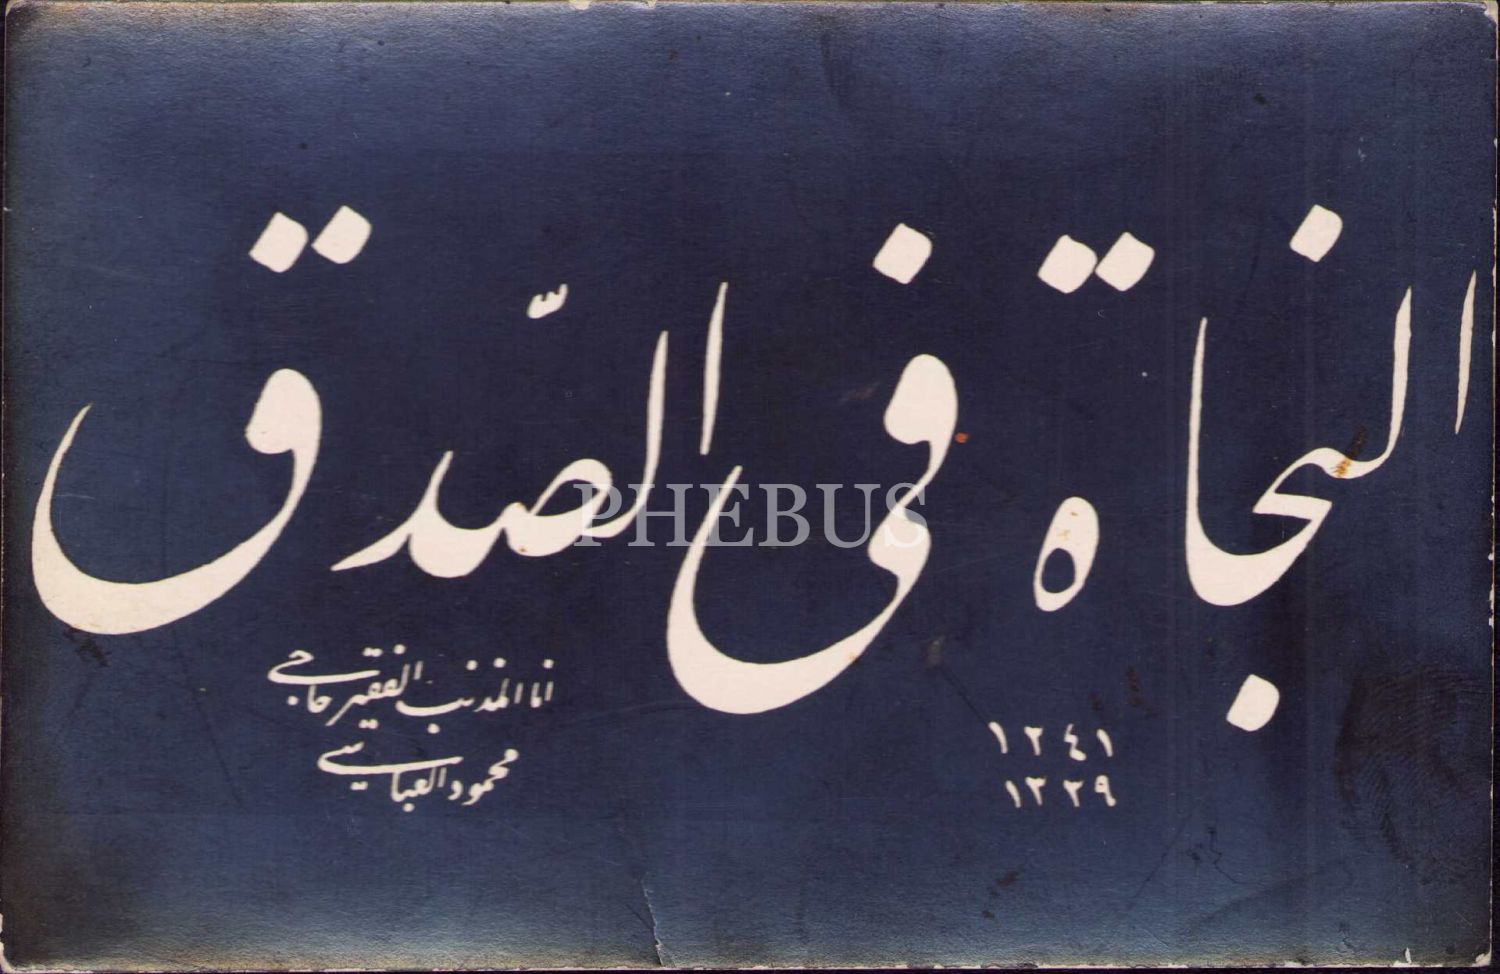 النجاة فى الصّدق
PHEBUS
انا المذنب الفقير حاجى
محمود العباسى
١٢٤١
١٣٣٩